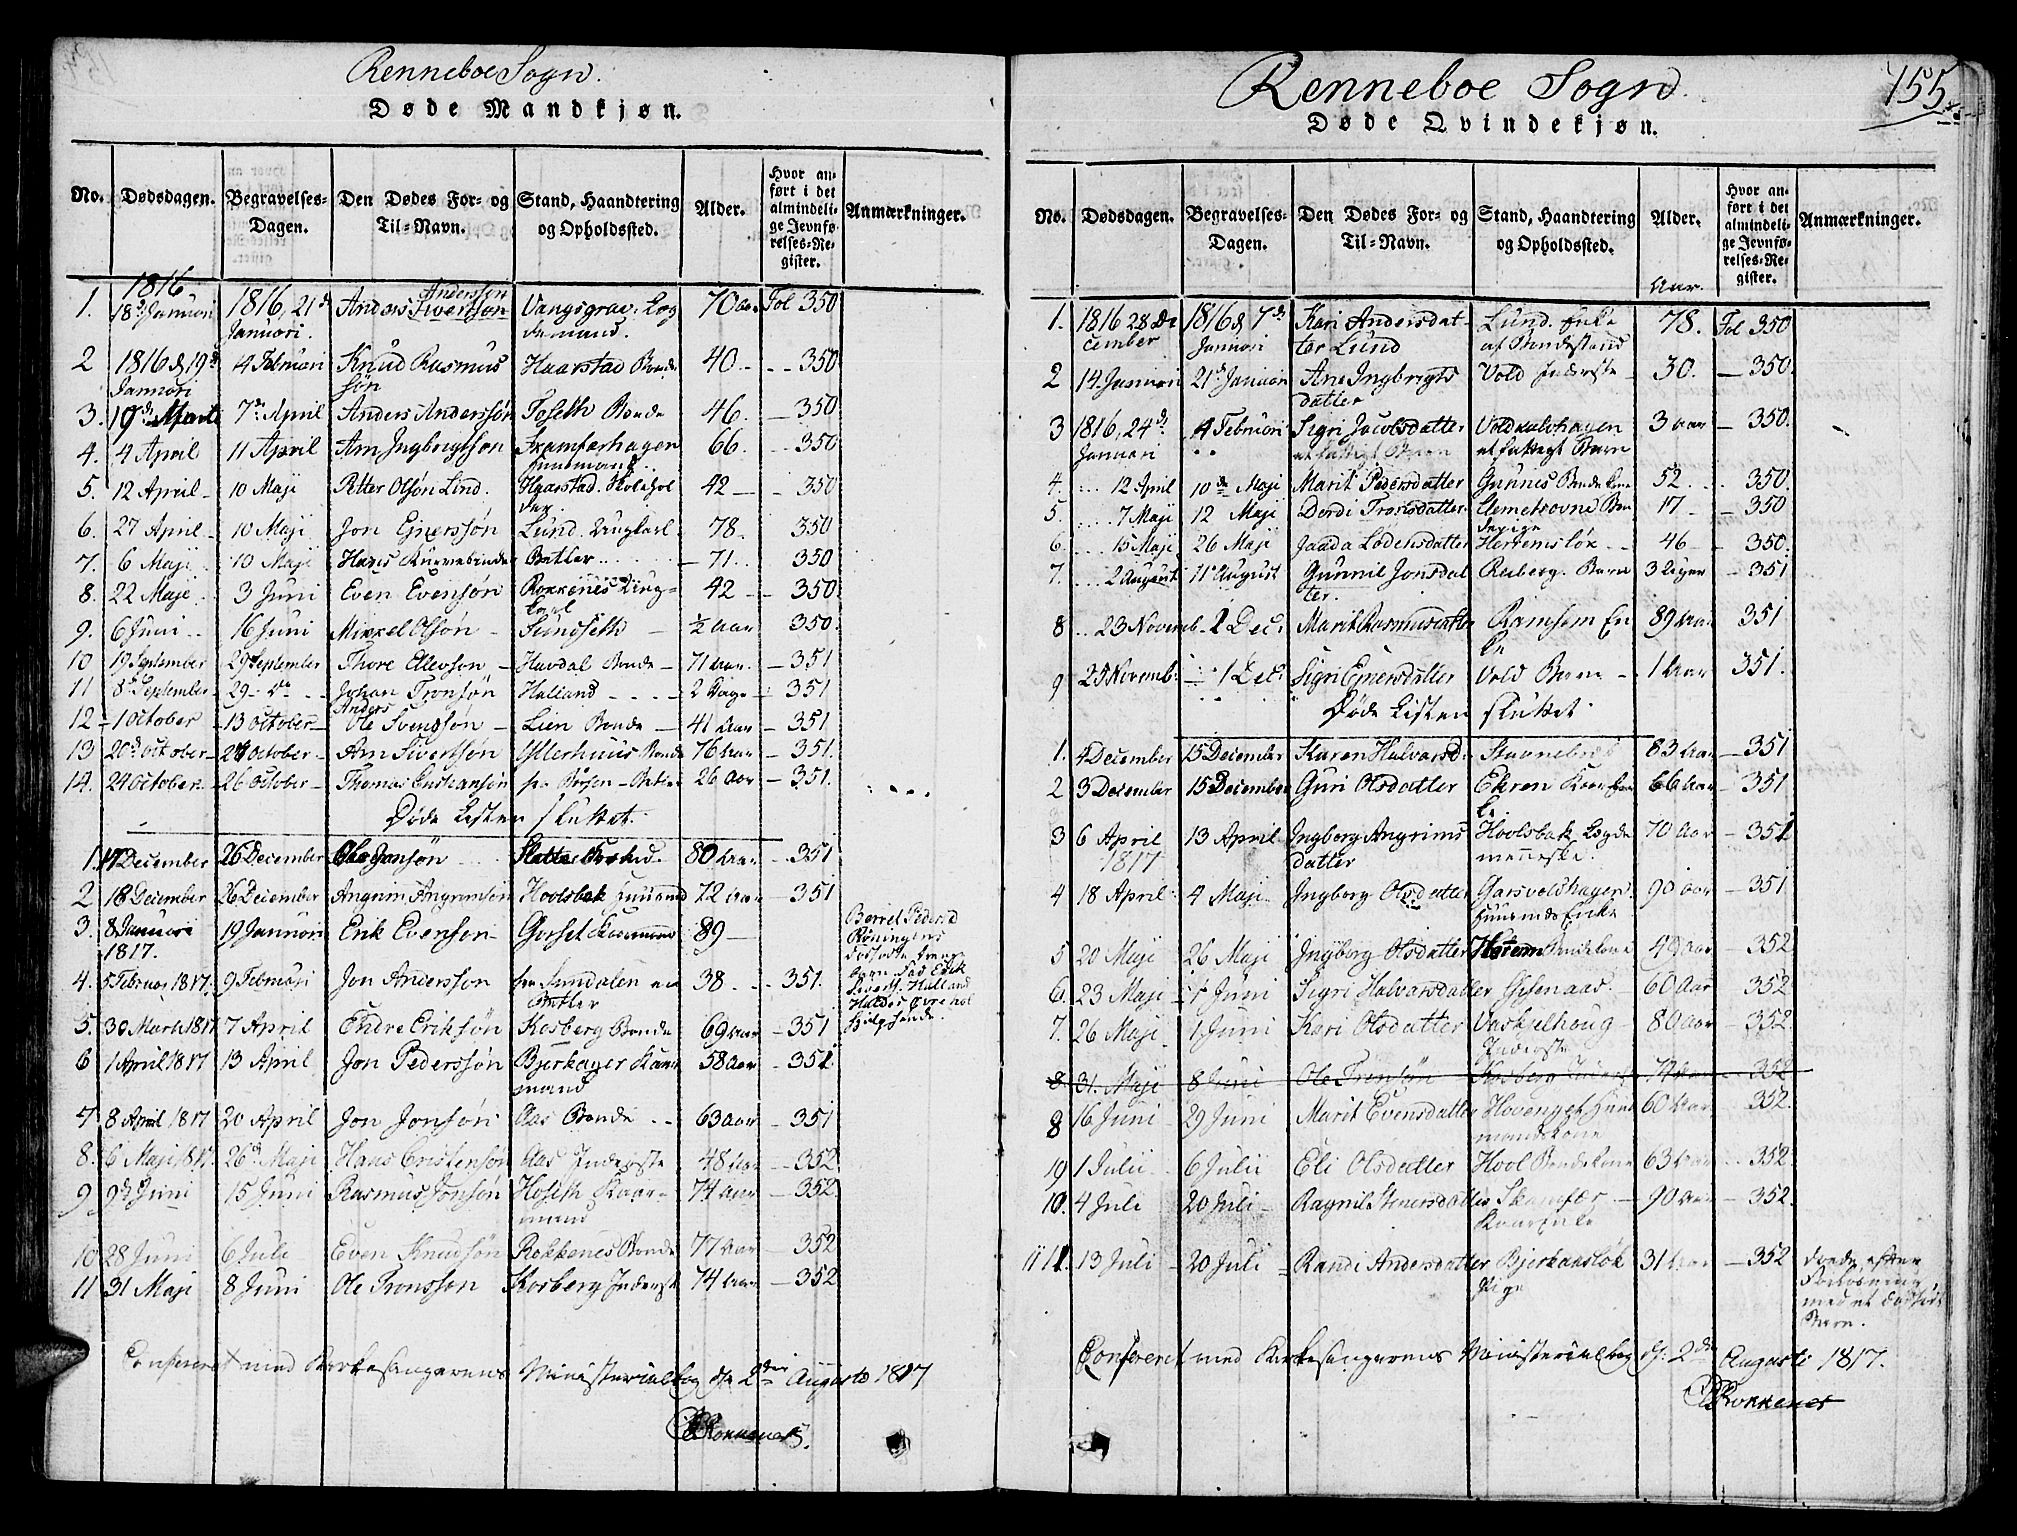 Renneboe Sogn.
Døde Mandkjøn.
No. Dødsdagen. Begravelses-Dagen. Den Dødes For- og Til-Navn. Stand, Haandtering og Opholdssted. Alder. Hvor anført i det almindelige Jevnførelses-Register. Anmærkninger.
1. 1816 18d Januari 1816, 21d Januari. Anders Andersson Sivertson Vangsgrav. Læg demand. 70 Fol 350
2 1816 d 19d Januari 4 Februari Knud Rasmus søn Haarstad Bonde 40 - 350
3. 19d Marti 7d April Anders Anderssøn Toseth Bonde 46. - 350
4. 4 April 11 April Arn Ingbrigtson Framfarhagen Huusmand 66 - 350
5. 12 April 10 Maji Petter Olsøn Lind. Haarstad. Skolehol der. 42 - 350
6. 27 April 10 Maji Jon Ejnerssøn Lund. Ungkarl 78. 350
7. 6 Maji 10 Maji Hans Betler 71. 350
8. 22 Maje 3 Juni Even Evensøn Rokkenes Ung- karl 42 - 350
9. 6 Juni 16 Juni Mikkel Olsøn Sundseth ½ Aar 350.
10 19 September 29 September Thore Ellevson Havdal Bonde 71 Aar. - 351
11 8 September 29 - do Johan Tronsøn Halland 2 Dage - 351
12 1 October 13 October Anders Ole Svendsøn Lien Bonde 41 Aar - 351
13 20d October 24 October Arn Sivertsøn Ytterhuus Bonde 76 Aar - 351.
14. 24 October 26 October Thomas Cristiansøn fra Børsen 26 Aar - 351.
Døde Listen sluttet.
1. 17 December 26 December Ole Jonsøn 80 Aar - 351
2 18 December 26 December Angrim Angrimsøn Hoolsbak Huusmand 72 Aar - 351
3. 8 Januari 1817. 19 Januari Erik Evensen Gorset 89 - Berret Peders d
4. 5 Februar 1817. 9 Februari Jon Andersson fra Sundalen en Betler 38 - 351.
5. 30 Marti 1817 7 April Endre Eriksøn Kosberg Bonde 69 Aar - 351
6 1 April 1817 13 April Jon Pederssøn Bjerkager Kaar mand 58 Aar - 351
7 8 April 1817 20 April Jon Jonsøn Aas Bonde 63 Aar - 351
8. 6 Maji 1817. 26d Maji Hans Cristensøn Aas Inderste 48 Aar - 352
9 9d Juni 15 Juni Rasmus Jonsøn Hoseth Kaar- mand 74 Aar - 352
10 28 Juni 6 Juli Even Knudsøn Rokkenes Bonde 77 Aar - 352
11 31 Maji 8 Juni Ole Tronsson Kosberg Inderst 74 Aar - 352
Confereret med Kirkesangerens Ministerialbog d. 2den Augusti 1817
Rokkenes.
155.
Renneboe Sogn.
Døde Qvindekjøn.
No. Dødsdagen. Begravelses-Dagen. Den Dødes For- og Til-Navn. Stand, Haandtering og Opholdssted. Alder. Hvor anført i det almindelige Jevnførelses-Register. Anmærkninger.
Aar.
1. 1816 28 De cember 1816 d 7d Januari Kari Andersdat- ter Lund Lund. Enke af Bondestand 78. Fol 350
2 14 Januari 21d Januari Ane Ingbrigts datter Vold Inderste 30. - 350.
3 1816, 24d Januari 4 Februari Sigri Jacobsdatter et fattigt Barn et fattigt Barn 3 Aar - 350.
4. 12 April 10de Maji Marit Pedersdatter Gunnes Bonde kone 52 350.
5. 7 Maji 12 Maji Dordi Tronsdatter 17 - 350
6. 15 Maji 26 Maji 46 - 350.
7. 2 August 11 August Gunnil Jonsdat ter. Reeberg. Barn 3 Uger - 351
8 23 Novemb. 1 Dec: Marit Rasmusdatter Ramsem En ke 89 Aar 351
9 25 Novemb: 1 Dec: Sigri Ejnersdatter Vold Barn 1 Aar 351.
Døde Listen sluttet.
1. 4 December 15 December Karen Halvorsd. 83 Aar - 351
2 3 December 15 December Guri Olsdatter Ekren 66 Aar - 351
3 6 April 1817 13 April Ingborg Angrims datter Hoolsbak Lægde menneske. 70 Aar - 351
4 18 April 4 Maji Ingborg Olsdatter Garsvolshagen Huusmds Enke 90 Aar - 351
5 20 Maji 26 Maji Ingborg Olsdatter Horem Bondekone 49 Aar - 352
6. 23 Maji 1 Juni Sigri Halvorsdatter Gisenaas. 60 Aar - 352
7. 26 Maji 1 Juni Kari Olsdatter Vaskjelhoug Inderste 80 Aar - 352.
8 31. Maji 8 Juni Ole Tronsøn Kosberg Inderst 74 Aar - 352
8 16 Juni 29 Juni Marit Evensdatter Hovenget Huus mandskone 60 Aar 352.
9 1 Julii 6 Julii Eli Olsdatter Hool Bondekone 63 Aar - 352.
10. 4 Juli 20 Juli Ragnil Stenersdatter Skamfær Kaarenke 90 Aar - 352.
11 11. 13 Juli 20 Juli Randi Andersdatter Bjerkaasløk Pige 31 Aar - 352 døde efter Forløsning med et dødfødt Barn.
Confereret med Kirkesangerens Ministerialbog d. 2den Augusti 1817.
Rokkenes